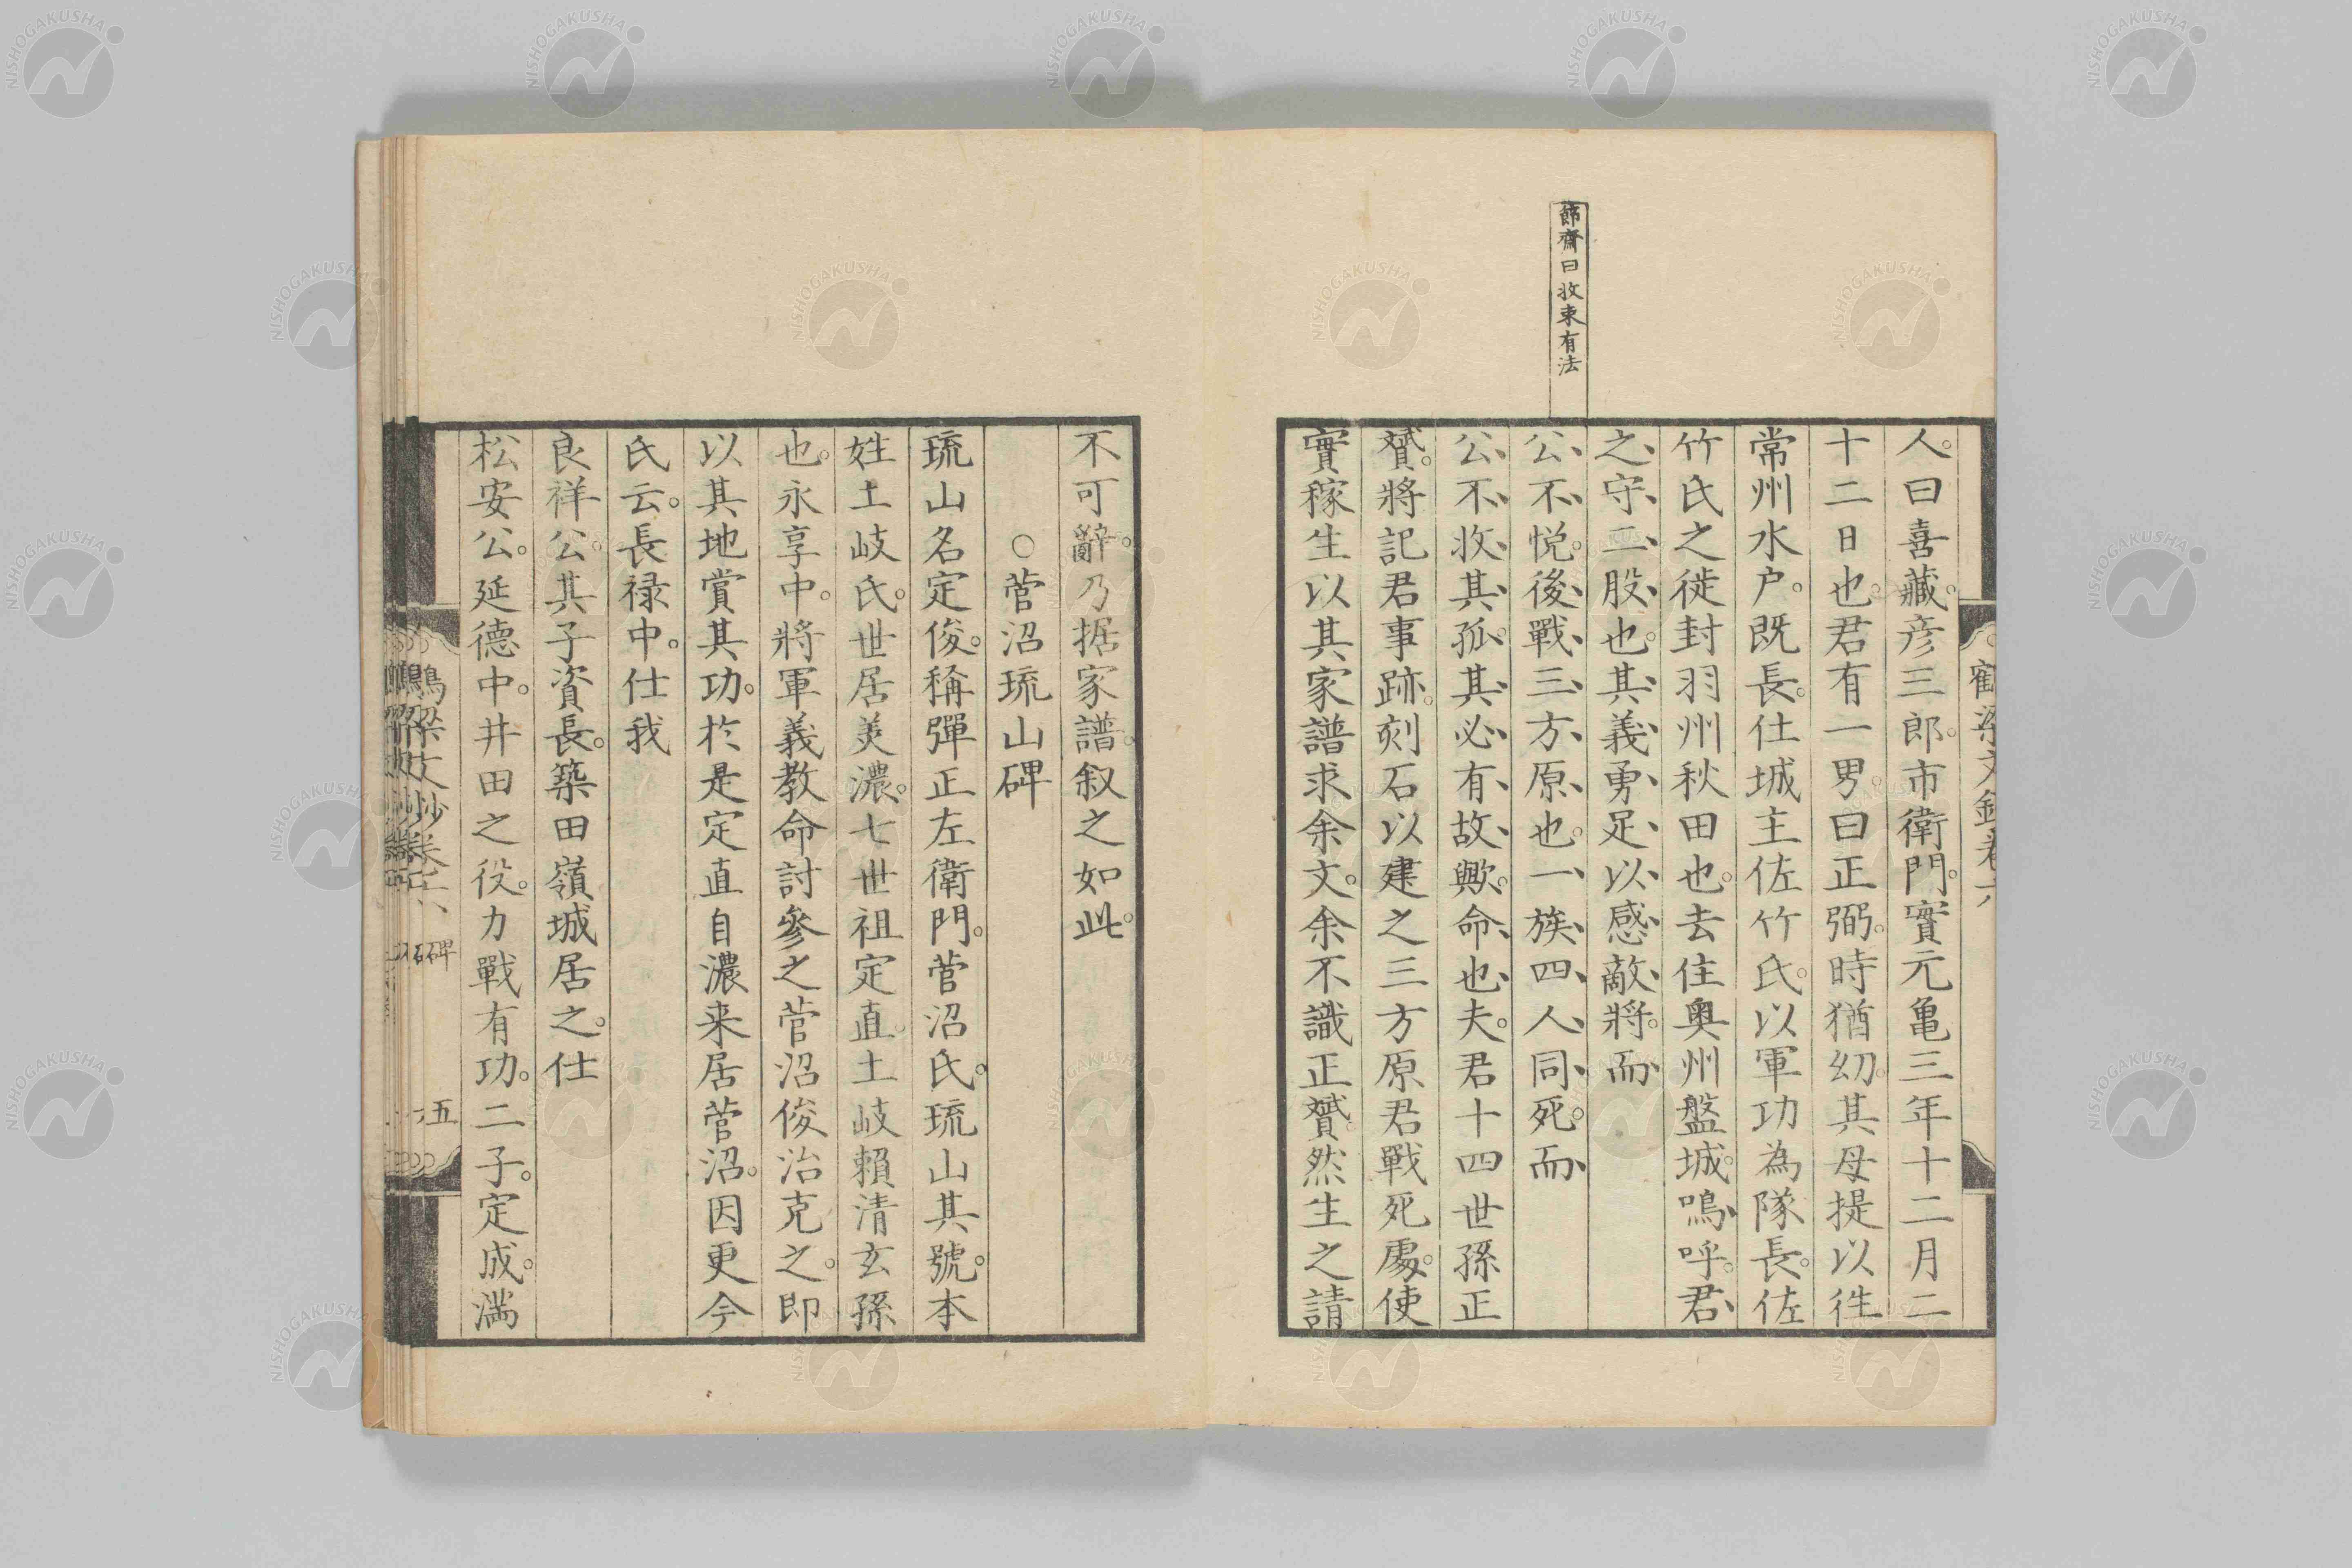 節齋曰收束有法
人。曰喜藏。彦三郎。市衛門。實元亀三年十二月二
十二日也。君有一男。曰正弼。時猶幼。其母提以徃
常州水户。既長。仕城主佐竹氏。以軍功為隊長。佐
竹氏之徙封羽州秋田也。去住奥州盤城。嗚呼。君、
之、守、二、股、也。其、義、勇、足、以、感、敵、將。而、
公、不、悦。後、戰、三、方、原、也。一、族、四、人、同、死。而、
公、不、收、其、孤。其、必、有、故、歟。命、也、夫。君十四世孫正
贇。將記君事跡。刻石以建之三方原君戰死處。使
實稼生以其家譜求余文。余不識正贇。然生之請
不可辭。乃据家譜。叙之如此。
○菅沼琉山碑
琉山名定俊。稱彈正左衛門。菅沼氏。琉山其號。本
姓土岐氏。世居美濃。七世祖定直。土岐頼清玄孫
也。永享中。將軍義教命討參之菅沼俊治克之。即
以其地賞其功。於是定直自濃来居菅沼。因更今
氏云。長禄中。仕我
良祥公。其子資長。築田嶺城居之。仕
松安公。延德中。井田之役。力戰有功。二子。定成。満
碑
五